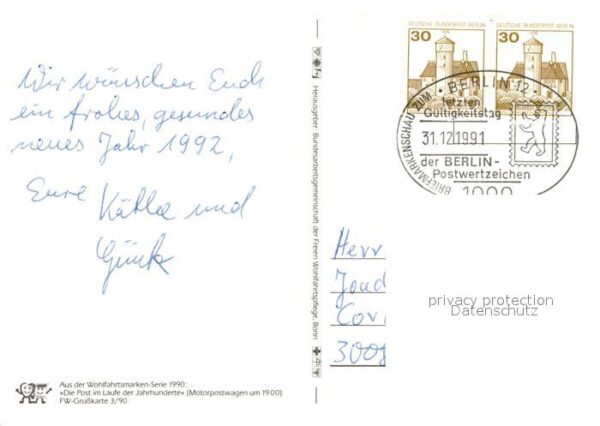 Wir wünschen Euch
ein frohes, gesundes
neues Jahr 1992,
Eure Käthe und
Aus der Wohlfahrtsmarken-Serie 1990:
»Die Post im Laufe der Jahrhunderte« (Motorpostwagen um 1900).
FW-Grußkarte 3/90
Herausgeber: Bundesarbeitsgemeinschaft der Freien Wohlfahrtspflege, Bonn
DEUTSCHE BUNDESPOST BERLIN
30
DEUTSCHE BUNDESPOST BERLIN
30
BRIEFMARKENSCHAU ZUM · BERLIN 12
letzten
Gültigkeitstag
31.12.1991
der BERLIN-
Postwertzeichen
1000
Herr
privacy protection
Datenschutz